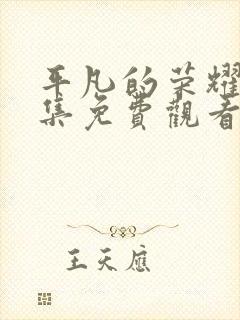 平凡的荣耀
集免費觀看
王天應